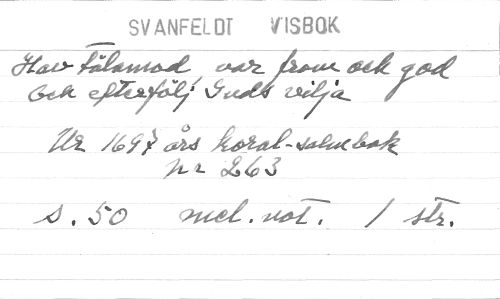 SVANFELDT VISBOK
Hav tålamod, var from och god
och efterfölj Guds vilja
Ur 1697 års koral-salmbok
nr 263
s. 50 mel. not. 1 str.